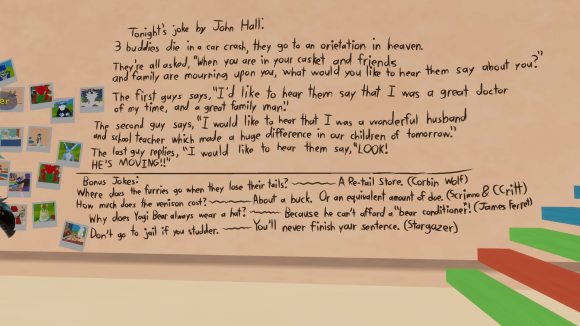 Tonight's joke by John Hall:
3 buddies die in a car crash, they go to an orietation in heaven.
They're all asked, "When you are in your casket and friends
and family are mourning upon you, what would you like to hear them say about you?"
The first guys says, "I'd like to hear them say that I was a great doctor
of my time, and a great family man."
The second guy says, "I would like to hear that I was a wonderful husband
and school teacher which made a huge difference in our children of tomorrow."
The last guy replies, "I would like to hear them say, "LOOK!
HE'S MOVING!!"
Bonus Jokes:
Where does the furries go when they lose their tails? A Re-tail Store. (Corbin Wolf)
How much does the venison cost? About a buck. Or an equivalent amount of doe. (Scrimmo & CCritt)
Why does Yogi Bear always wear a hat? Because he can't afford a "bear conditioner"! (James Ferret)
Don't go to jail if you studder. You'll never finish your sentence. (Stargazer)